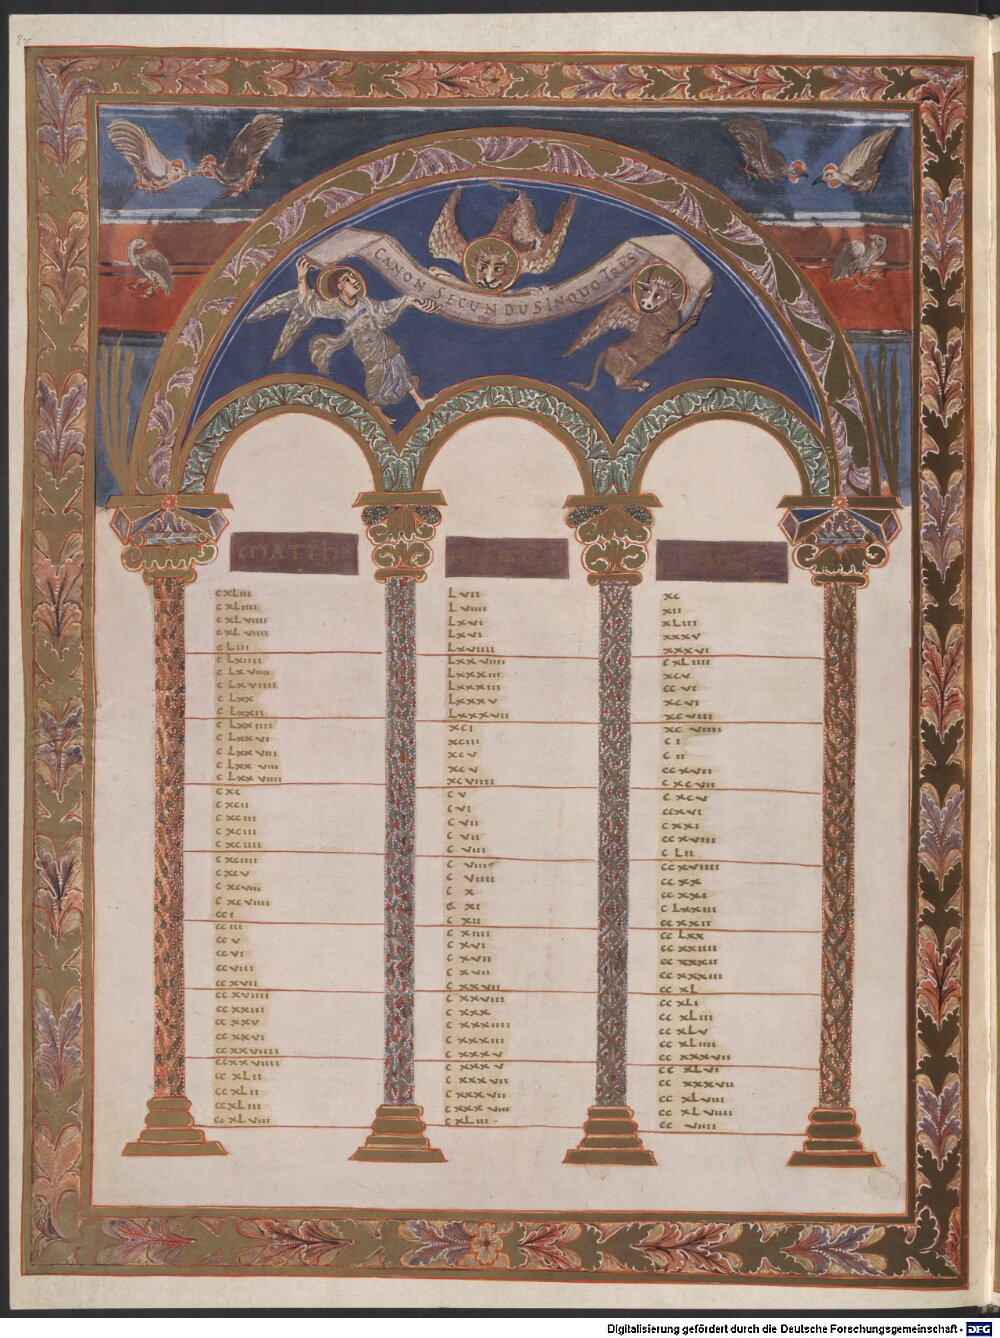 8v
CANON SECUNDUS INQUO TRES
MATTH
cxLiii
cxLiiii
cxLviiii
cxLviiii
cLiii
cLxiiii
cLxviii
cLxviiii
cLxx
cLxxii
cLxxiiii
cLxxvi
cLxxviii
cLxxviii
cLxxviiii
cxc
cxcii
cxciii
cxciii
cxciiii
cxciiii
cxcv
cxcviii
cxcviiii
cci
cciii
ccv
ccvi
ccviii
ccxvii
ccxviiii
ccxxiii
ccxxv
ccxxvi
ccxxviiii
ccxxviiii
ccxLii
ccxLii
ccxLiii
ccxLviii
Lvii
Lviiii
Lxvi
Lxvi
Lxviiii
Lxxviiii
Lxxxiii
Lxxxiii
Lxxxv
Lxxxvii
xci
xciii
xcv
xcv
xcviiii
cv
cvi
cvii
cvii
cviii
cviii
cviiii
cx
cxi
cxii
cxiiii
cxvi
cxvii
cxvii
cxxvii
cxxviii
cxxx
cxxxiiii
cxxxiii
cxxxv
cxxxv
cxxxvii
cxxxvii
cxxxviii
cxLiii
xc
xii
xLiii
xxxv
xxxvi
cxLiiii
xcv
ccvi
xcvi
xcviii
xcviiii
ci
cii
ccxvii
cxcvii
cxcv
ccxvi
cxxi
ccxviii
cLii
ccxviiii
ccxx
ccxxi
cLxxiii
ccxxii
ccLxx
ccxxiiii
ccxxxii
ccxxxiii
ccxL
ccxLi
ccxLiii
ccxLv
ccxLiiii
ccxxxvii
ccxLvi
ccxxxvii
ccxLviii
ccxLviiii
ccviiii
Digitalisierung gefördert durch die Deutsche Forschungsgemeinschaft - DFG